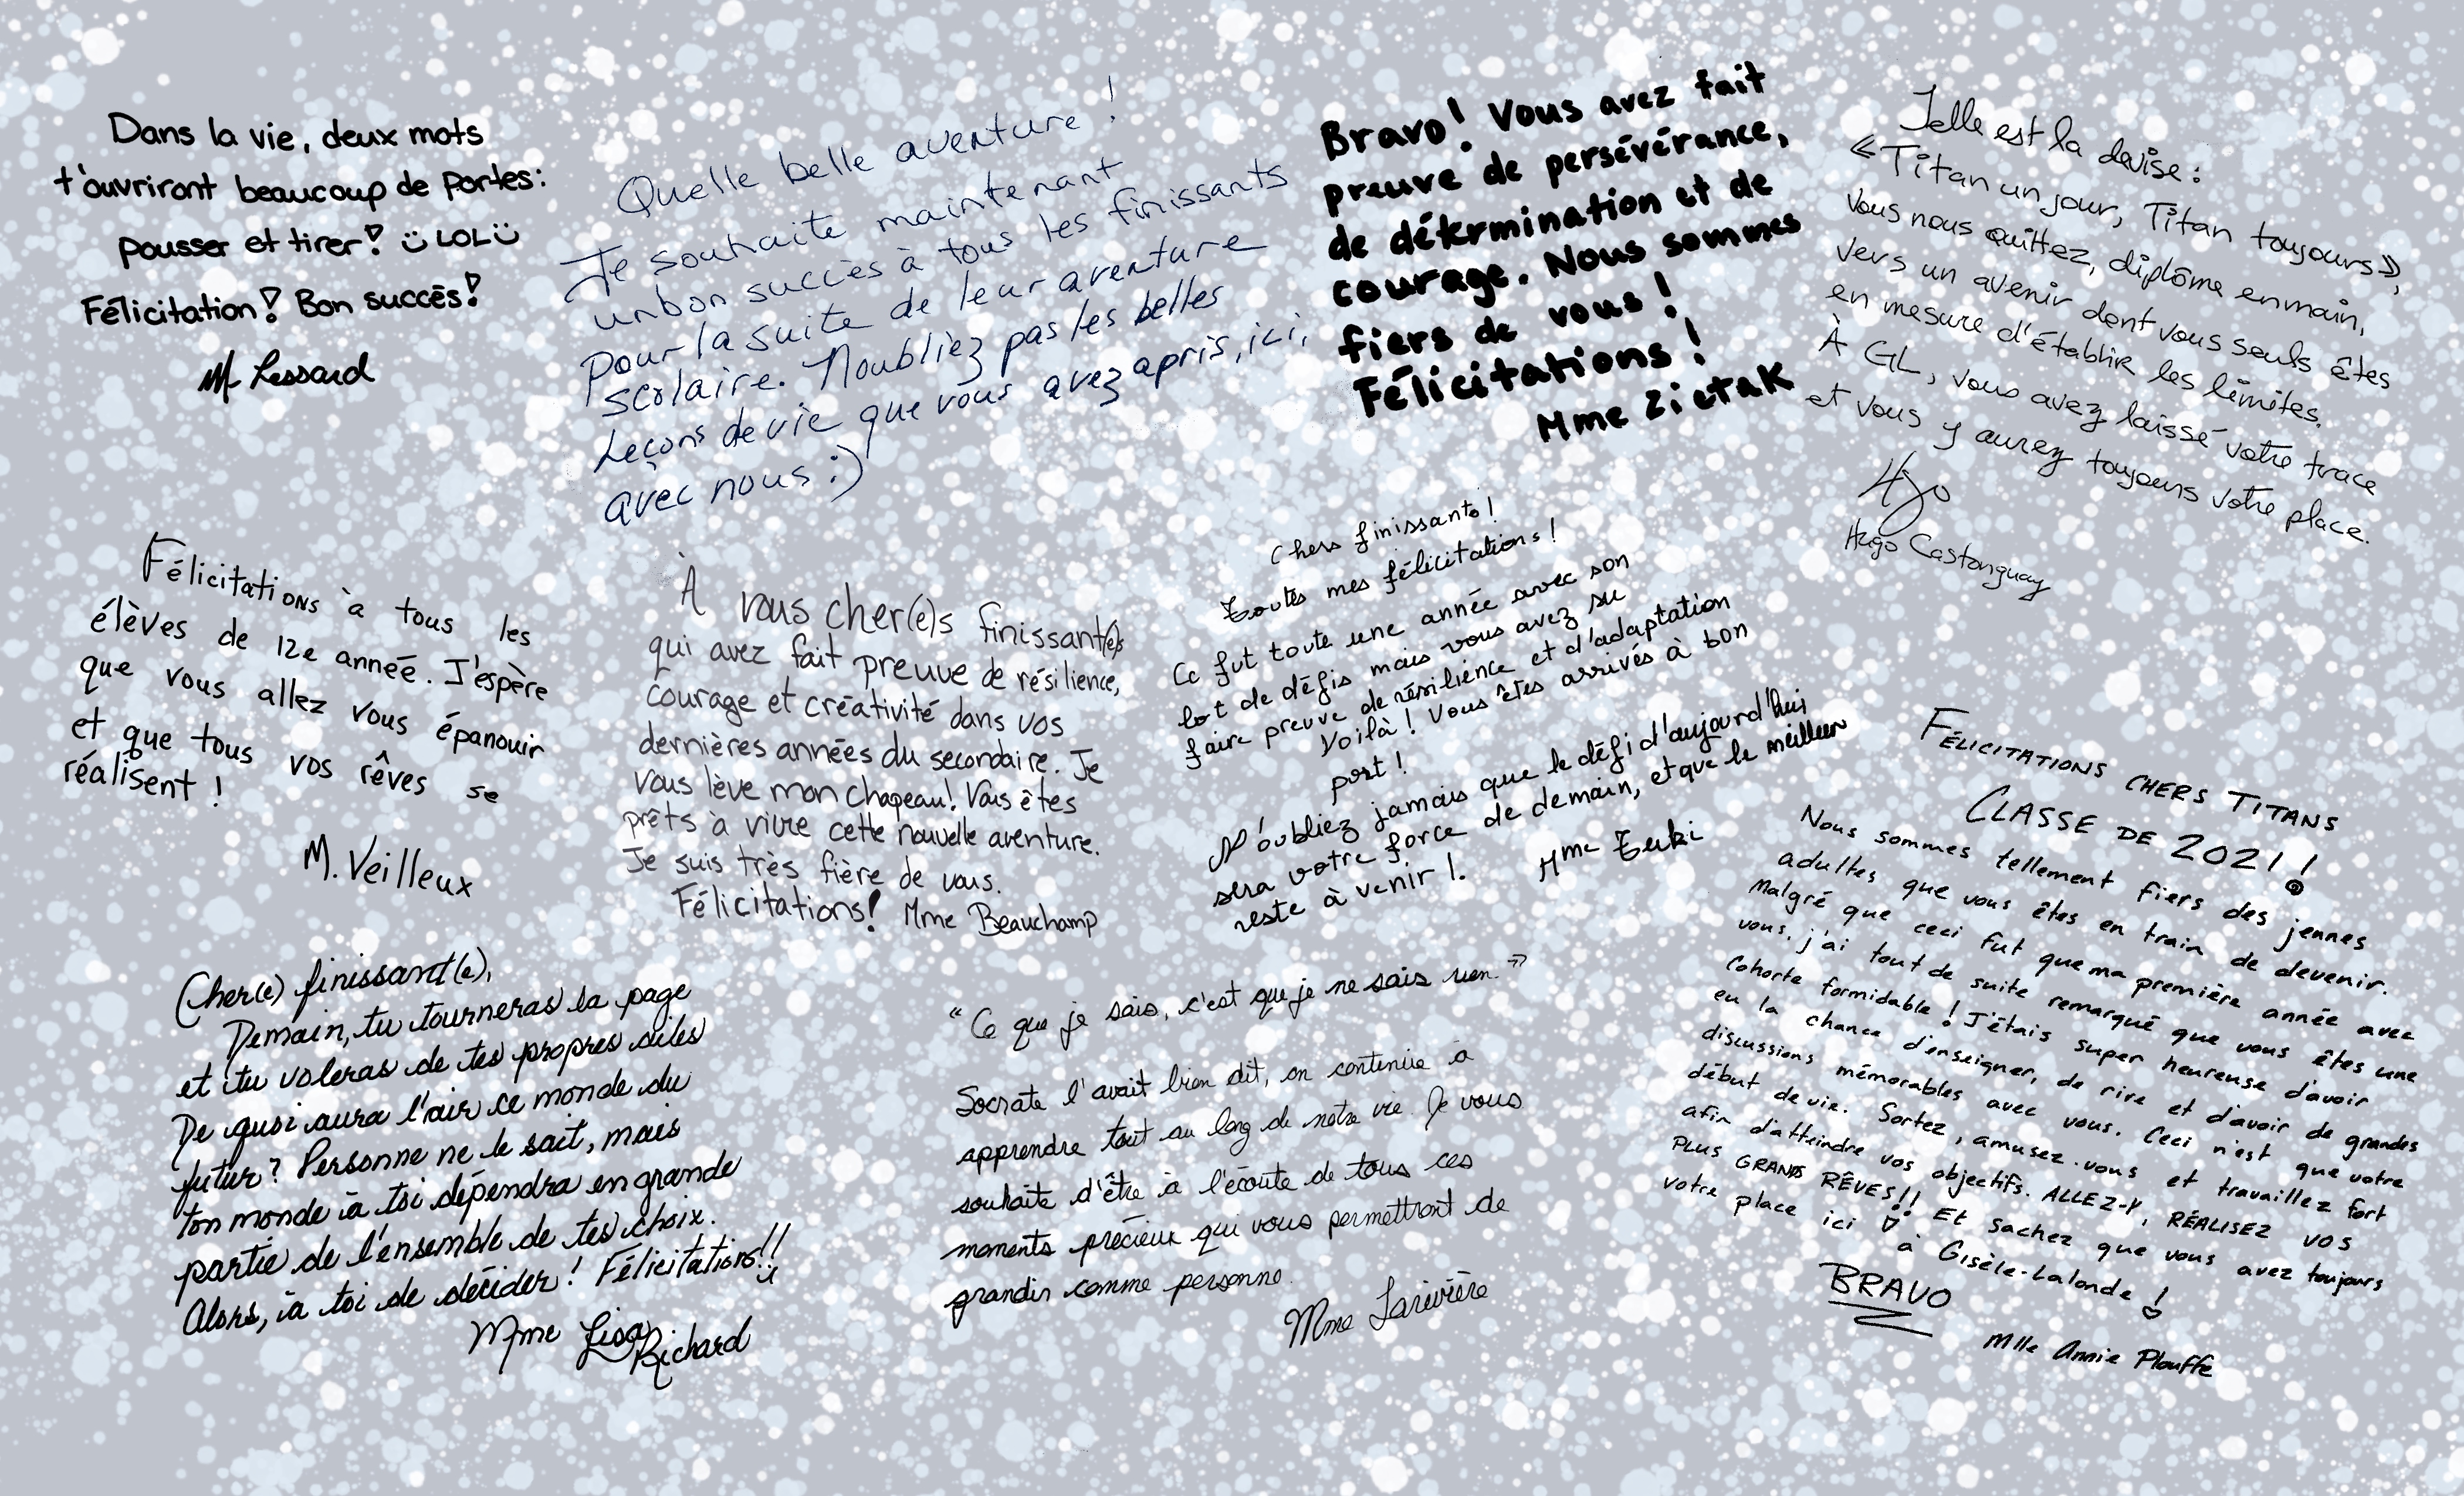 Dans la vie, deux mots
t'ouvriront beaucoup de portes:
pousser et tirer! ü LOL ü
Félicitation! Bon succès!
M. Lessard
Quelle belle aventure !
Je souhaite maintenant
un bon succès à tous les finissants
pour la suite de leur aventure
scolaire. Noubliez pas les belles
Leçons de vie que vous avez apris, ici,
avec nous :)
Bravo! Vous avez fait
preuve de persévérance,
de détermination et de
courage. Nous sommes
fiers de vous !
Félicitations !
Mme Zietak
Telle est la devise :
«Titan un jour, Titan toujours»,
Vous nous quittez, diplôme en main,
vers un avenir dont vous seuls êtes
en mesure d'établir les limites.
À GL, vous avez laissé votre trace
et vous y aurez toujours votre place.
Hugo Castonguay
Félicitations à tous les
élèves de 12e année. J'espère
que vous allez vous épanouir
et que tous vos rêves se
réalisent !
M. Veilleux
À vous cher(e)s finissant(e)s
qui avez fait preuve de résilience,
courage et créativité dans vos
dernières années du secondaire. Je
vous lève mon chapeau! Vous êtes
prêts à vivre cette nouvelle aventure.
Je suis très fière de vous.
Félicitations! Mme Beauchamp
Chers finissants!
Toutes mes félicitations!
Ce fut toute une année avec son
lot de défis mais vous avez su
faire preuve de résilience et d'adaptation
Voilà! Vous êtes arrivés à bon
port !
N'oubliez jamais que le défi d'aujourd'hui
sera votre force de demain, et que le meilleur
reste à venir !.
Mme Turki
FÉLICITATIONS CHERS TITANS
CLASSE DE 2021!
Nous sommes tellement fiers des jeunes
adultes que vous êtes en train de devenir.
Malgré que ceci fut que ma première année avec
vous, j'ai tout de suite remarqué que vous êtes une
cohorte formidable ! J'étais super heureuse d'avoir
eu la chance d'enseigner, de rire et d'avoir de grandes
discussions mémorables avec vous. Ceci n'est que votre
début de vie. Sortez, amusez-vous et travaillez fort
afin d'atteindre vos objectifs. ALLEZ-Y, RÉALISEZ VOS
PLUS GRANDS RÊVES!! Et sachez que vous avez toujours
votre place ici à Gisèle-Lalonde !
BRAVO
Mlle Annie Plouffe
Cher(e) finissant(e),
Demain, tu tourneras la page
et tu voleras de tes propres ailes
De quoi aura l'air ce monde du
futur? Personne ne le sait, mais
ton monde à toi dépendra en grande
partie de l'ensemble de tes choix.
Alors, à toi de décider! Félicitations!!
Mme Lisa Richard
"Ce que je sais, c'est que je ne sais rien."
Socrate l'avait bien dit, on continue à
apprendre tout au long de notre vie. Je vous
souhaite d'être à l'écoute de tous ces
moments précieux qui vous permettront de
grandir comme personne.
Mme Larivière